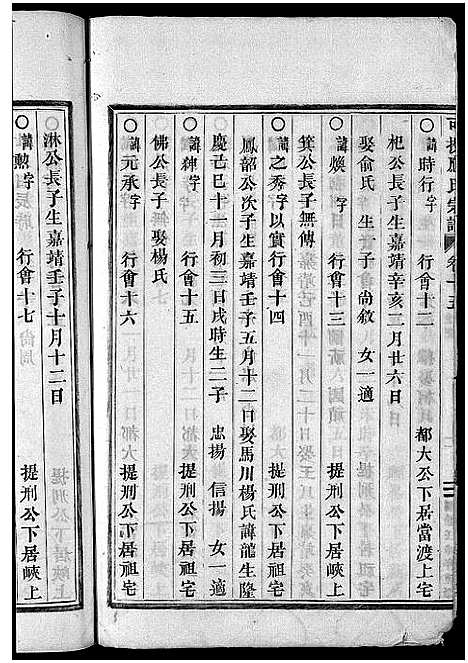 氏宗譜 卷十五
○諱時行字 行會十二 都大公下居當渡上宅
杞公長子生嘉靖辛亥二月廿六日 日
娶俞氏 生一子 尙敘 女一適
○諱煥字 行會十三
箕公長子無傳
○諱之秀字以實行會十四 提刑公下居祖宅
鳳韶公次子生嘉靖壬子五月十二日娶馬川楊氏諱龍生隆
慶己巳十一月初三日戌時生二子 忠揚 信揚 女一適
○諱紳字 行會十五 提刑公下居祖宅
佛公長子無娶楊氏
○諱元承字 行會十六 提刑公下居峽上
淋公長子生嘉靖壬子十月十二日
○諱勲字 行會十七 提刑公下居峽上